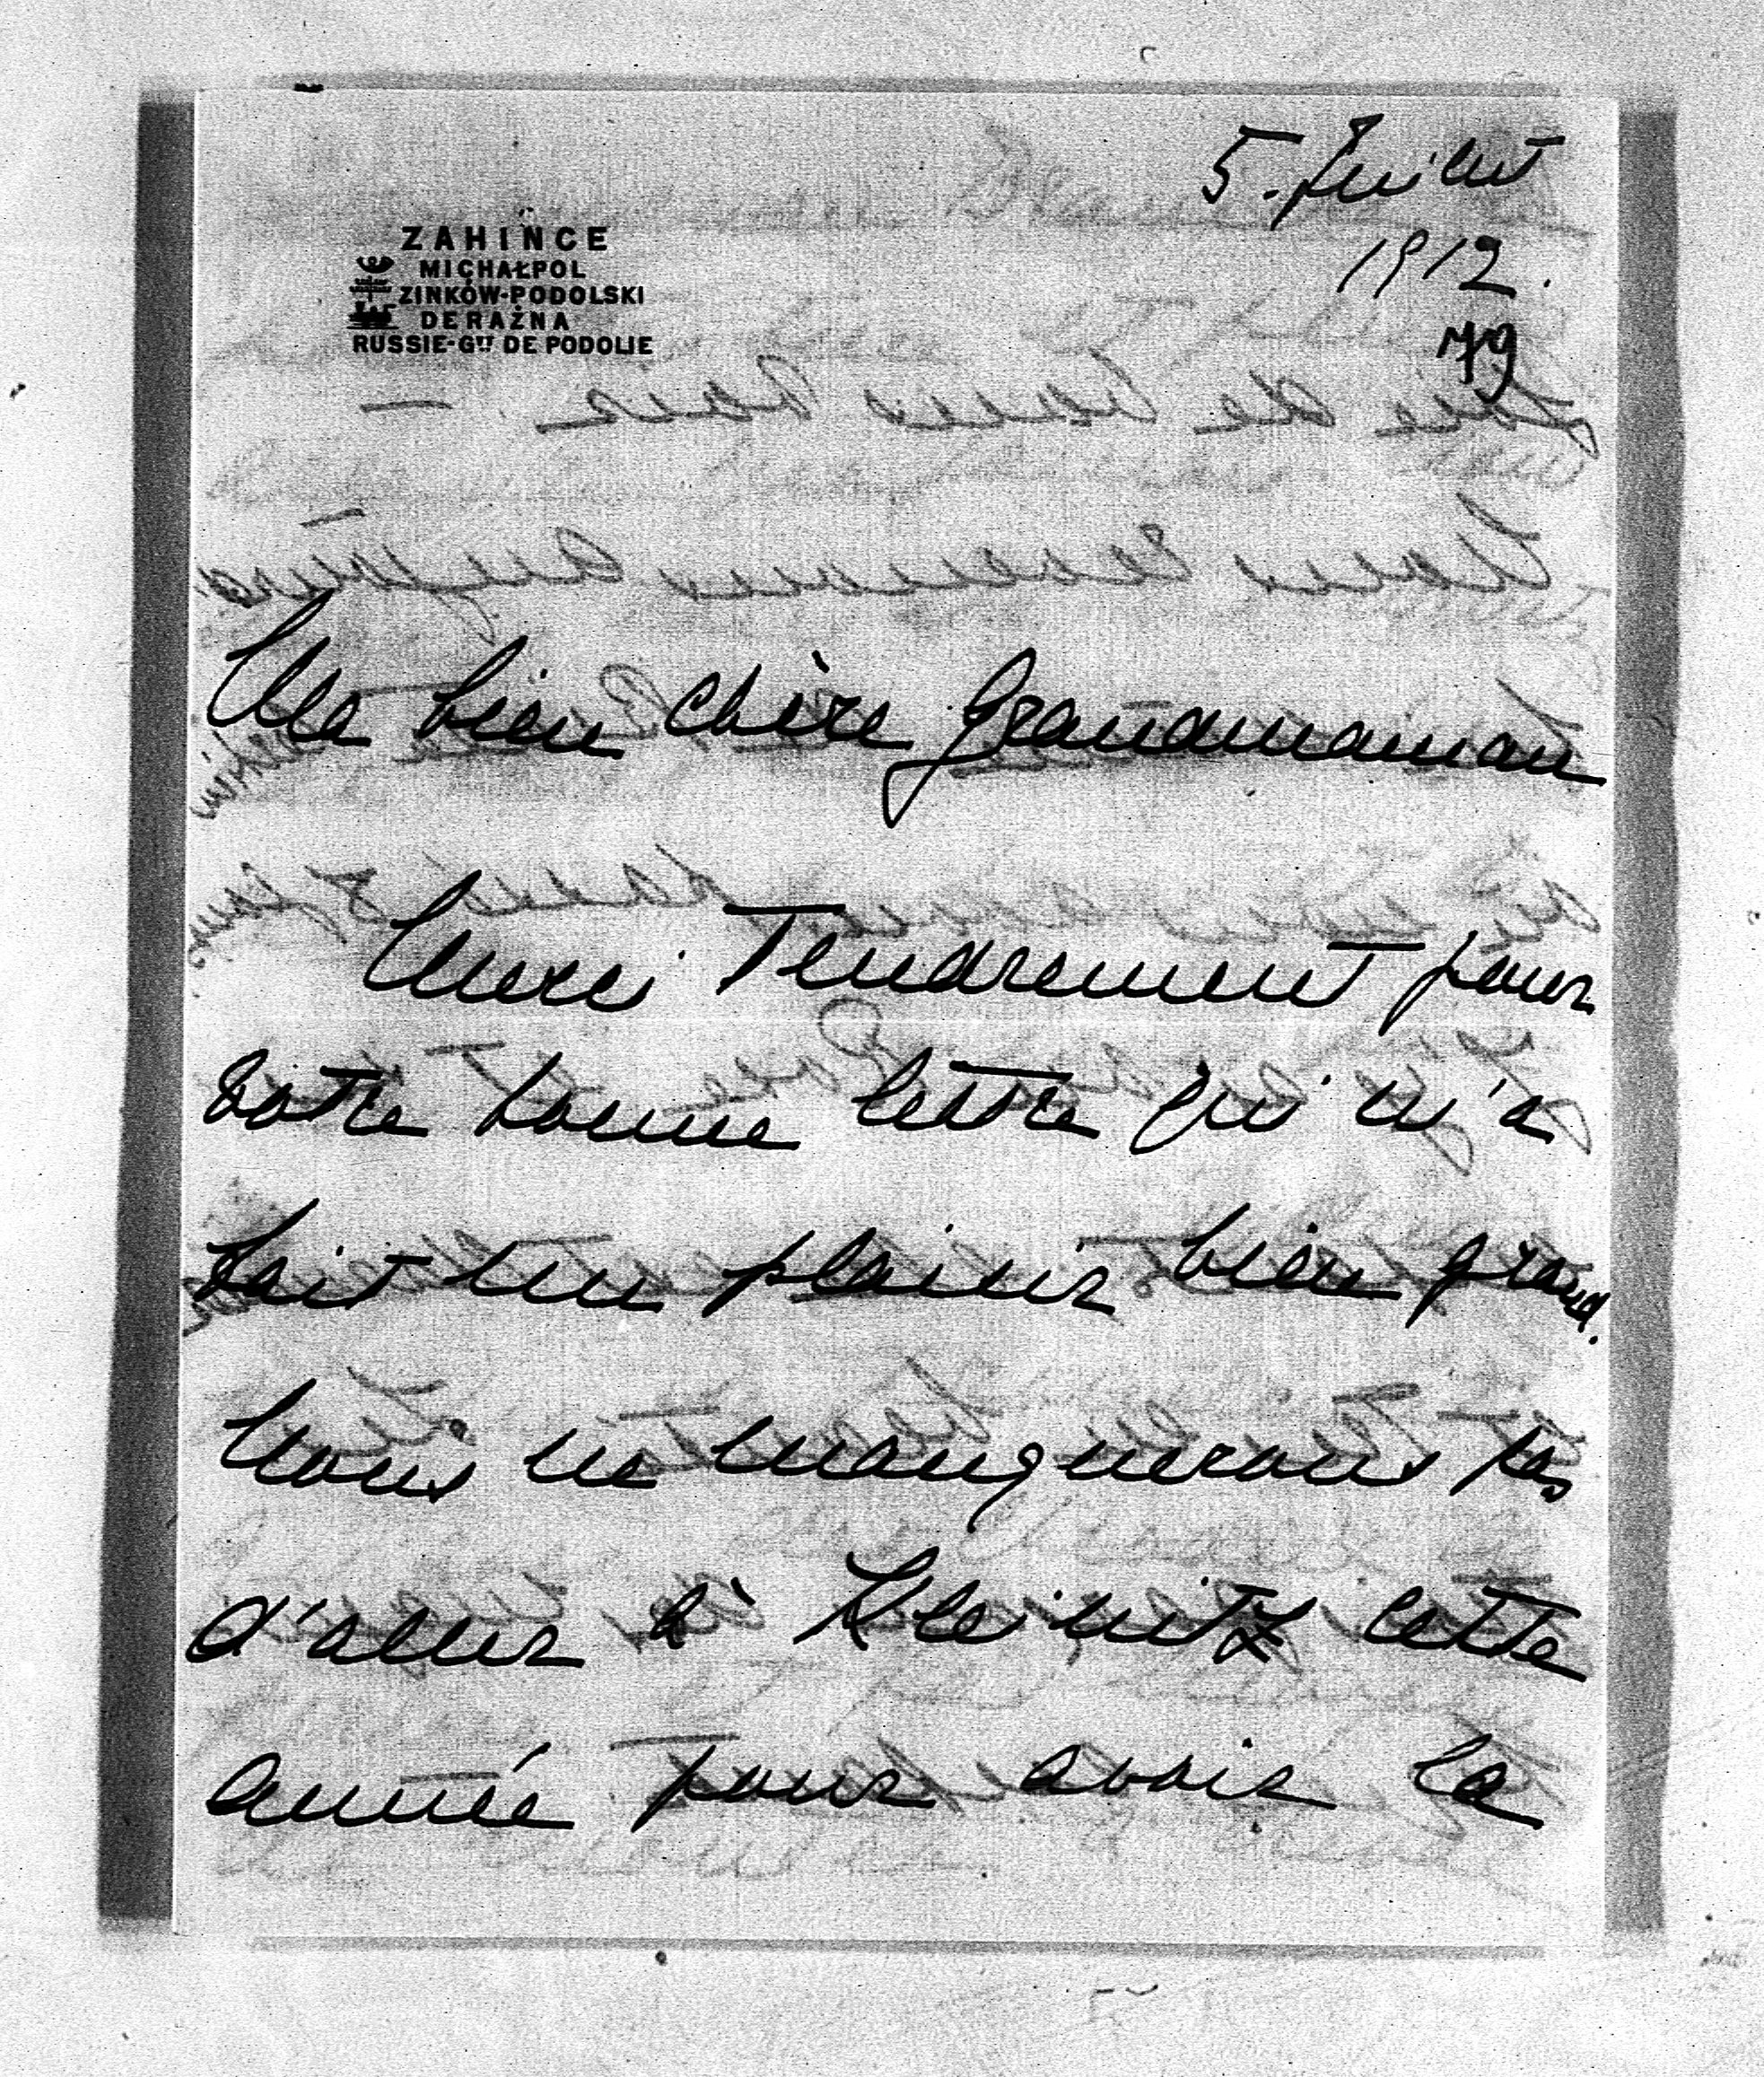 5. Juillet
1912.
79
ZAHIŃCE
MICHAŁPOL
ZINKÓW-PODOLSKI
DERAŻNA
RUSSIE-GVT DE PODOLIE
Ma bien chère Grandmaman,
Merci tendrement pour
votre bonne lettre qui m'a
fait un plaisir bien grand.
Nous ne manquerons pas
d'aller à Kleinitz cette
année pour avoir la